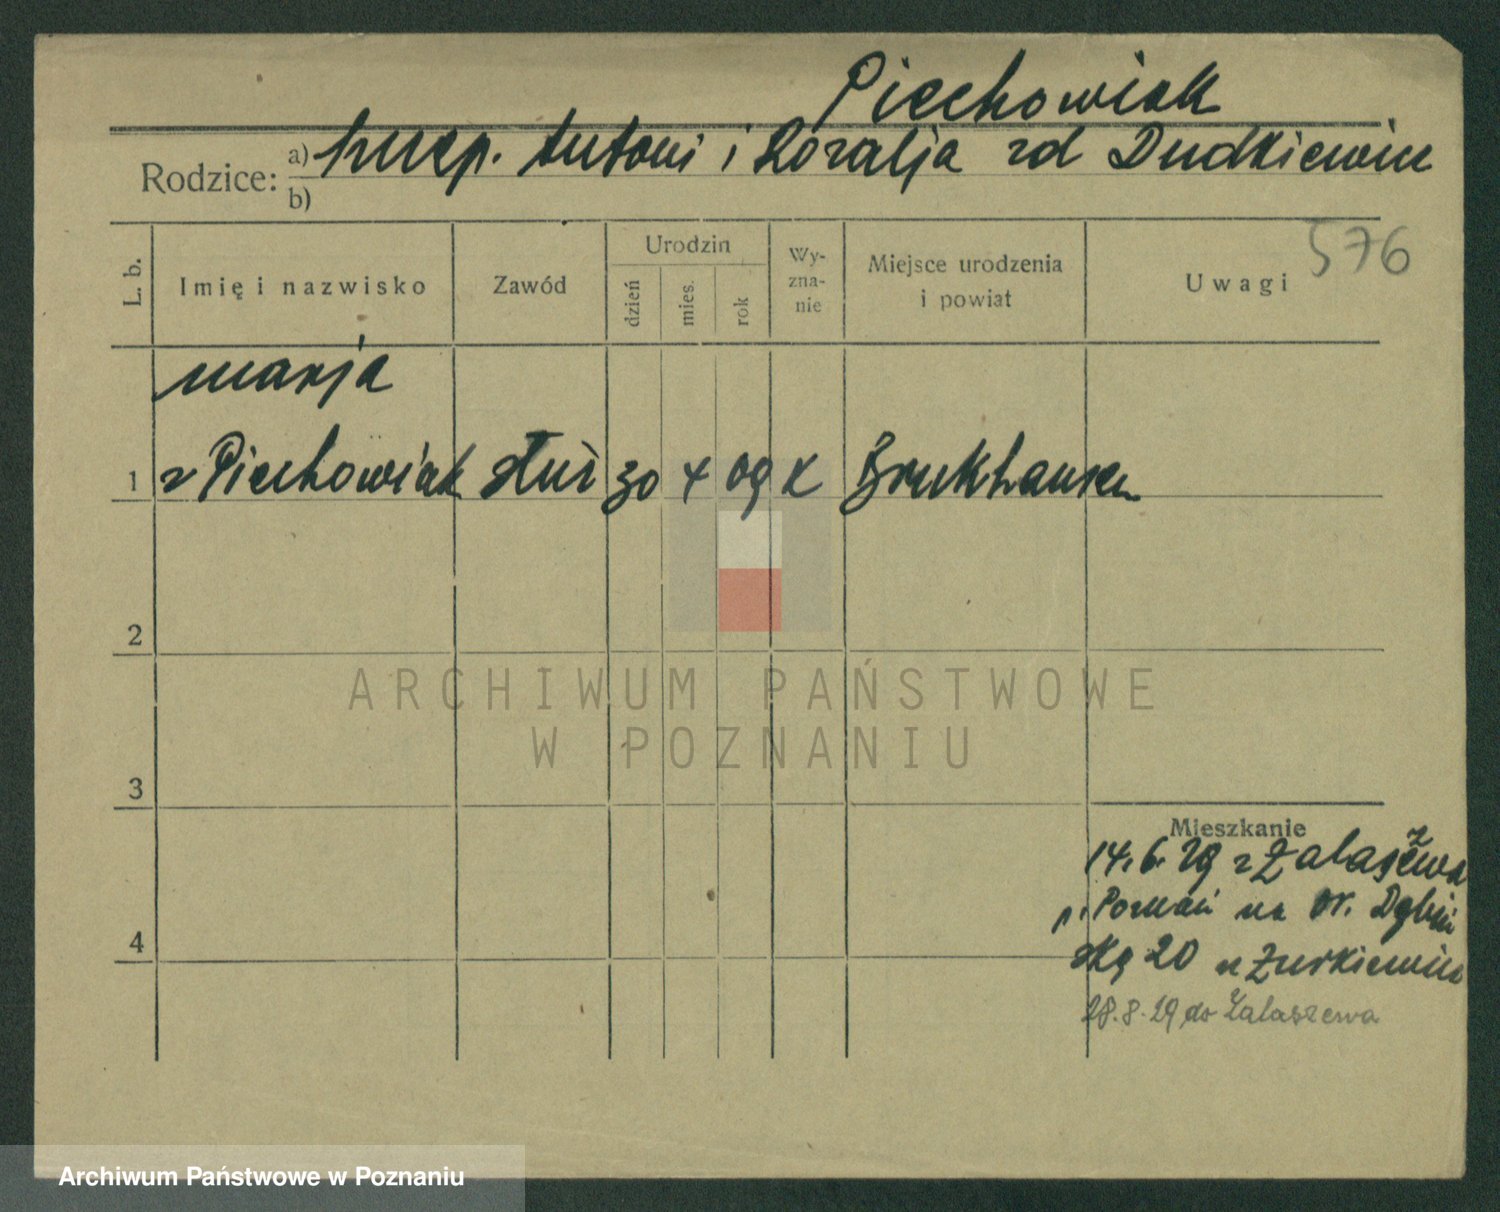 Piechowiak
Rodzice: a) Antoni i Rozalja zd Dudkiewicz
b)
576
L. b.
Imię i nazwisko
Zawód
Urodzin
dzień
mies.
rok
Wy-
zna-
nie
Miejsce urodzenia
i powiat
Uwagi
Marja
1 z Piechowiak służ 30 4 09 k Brukhausen
2
ARCHIWUM PAŃSTWOWE
W POZNANIU
3
Mieszkanie
14.6.29 z Zalaszewa
p. Poznań na
20 u Żurkiewicz
28.8.29 do Zalaszewa
4
Archiwum Państwowe w Poznaniu